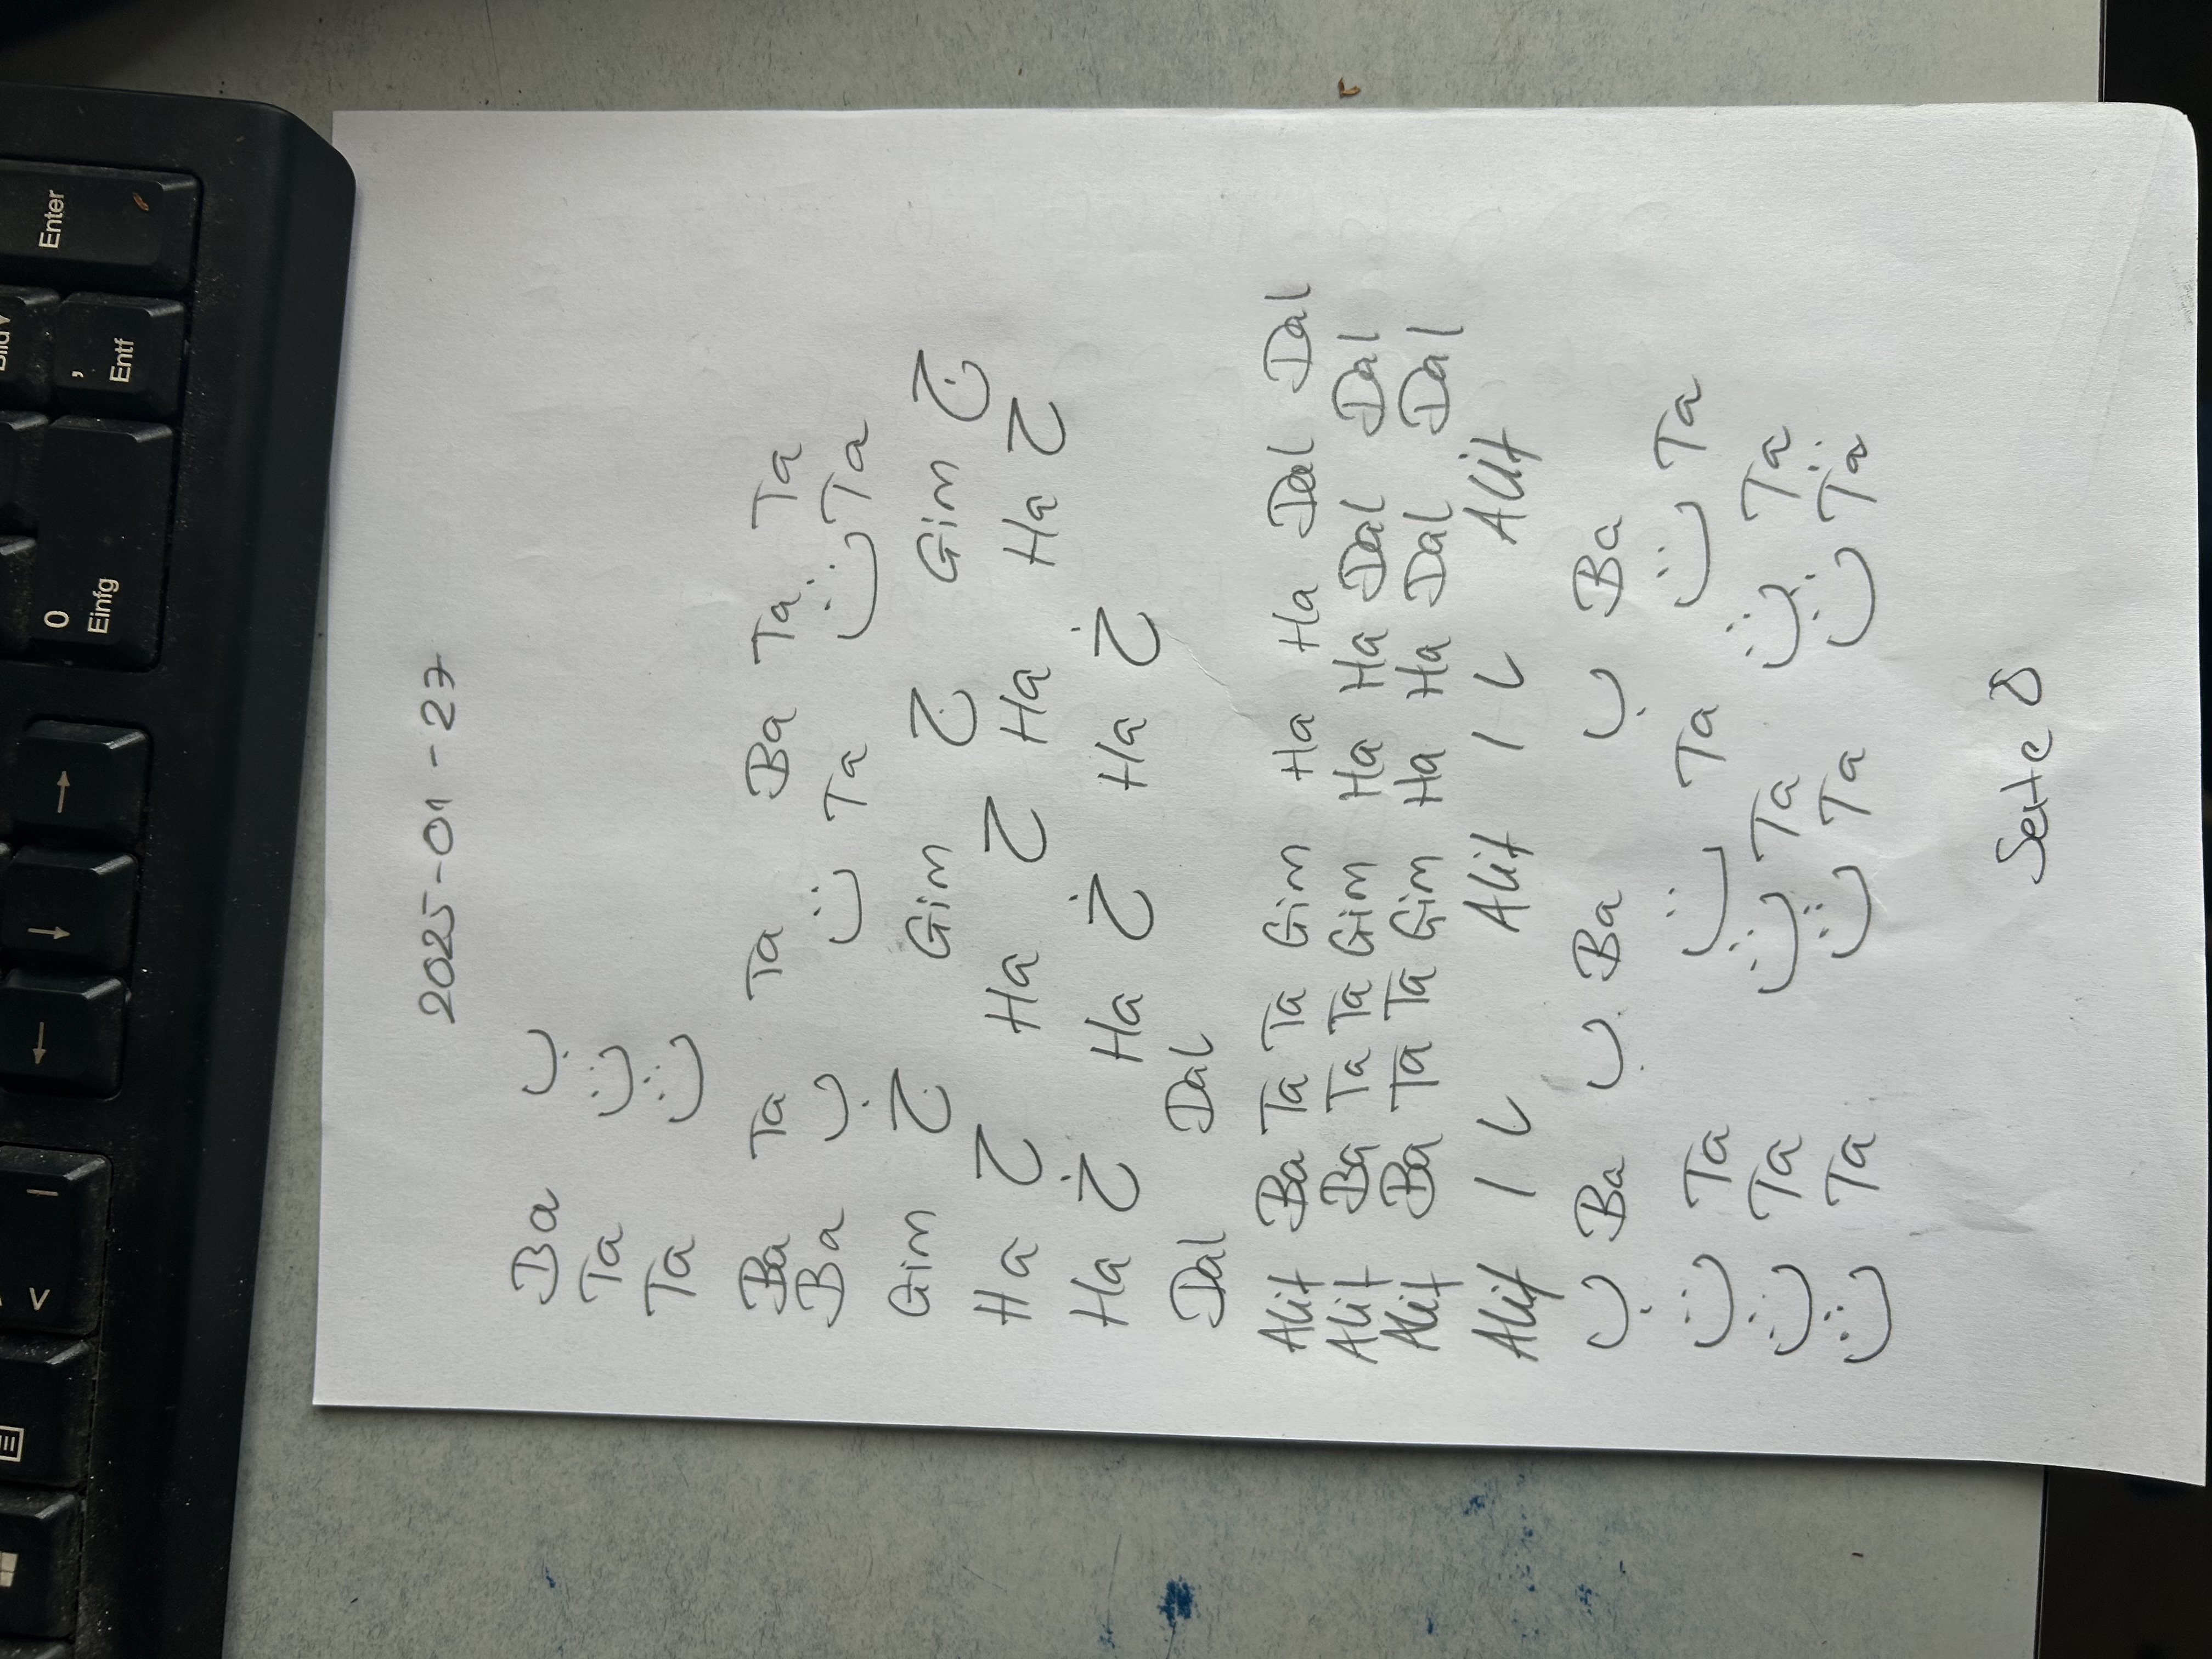 <
|
←
↓
→
0
Einfg
,
Entf
Enter
2025-01-27
Ba ب
Ta ت
Ta ث
Ba Ta Ta Ba Ta Ta
Ba ب ت Ta ث Ta
Gim ج Gim ج Gim ج
Ha ح Ha ح Ha Ha ح
Ha خ Ha خ Ha خ
Dal Dal
Alif Ba Ta Ta Gim Ha Ha Dal Dal
Alif Ba Ta Ta Gim Ha Ha Dal Dal
Alif Ba Ta Ta Gim Ha Ha Dal Dal
Alif ا ـا Alif ا ـا Alif
ب Ba ب Ba ب Ba
ت Ta ت Ta ت Ta
ث Ta ث Ta ث Ta
ث Ta ث Ta ث Ta
Seite 8